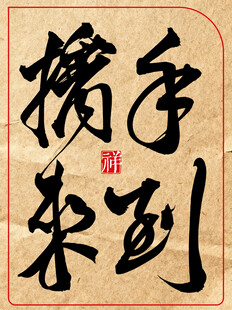 手到
擒来
祥